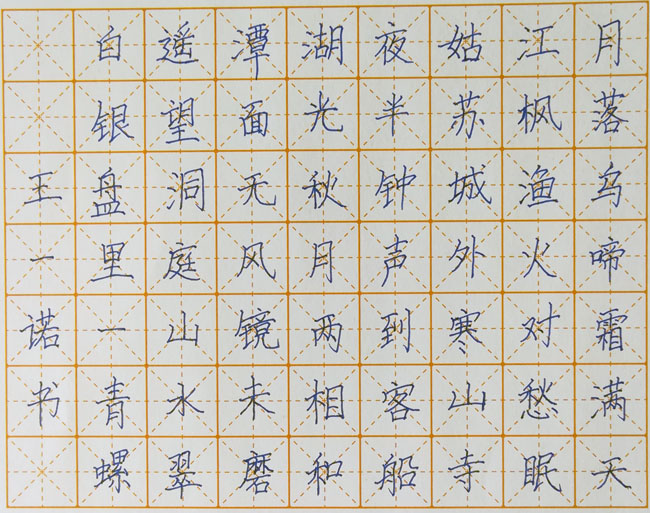 月落乌啼霜满天
江枫渔火对愁眠
姑苏城外寒山寺
夜半钟声到客船
湖光秋月两相和
潭面无风镜未磨
遥望洞庭山水翠
白银盘里一青螺
王一诺书